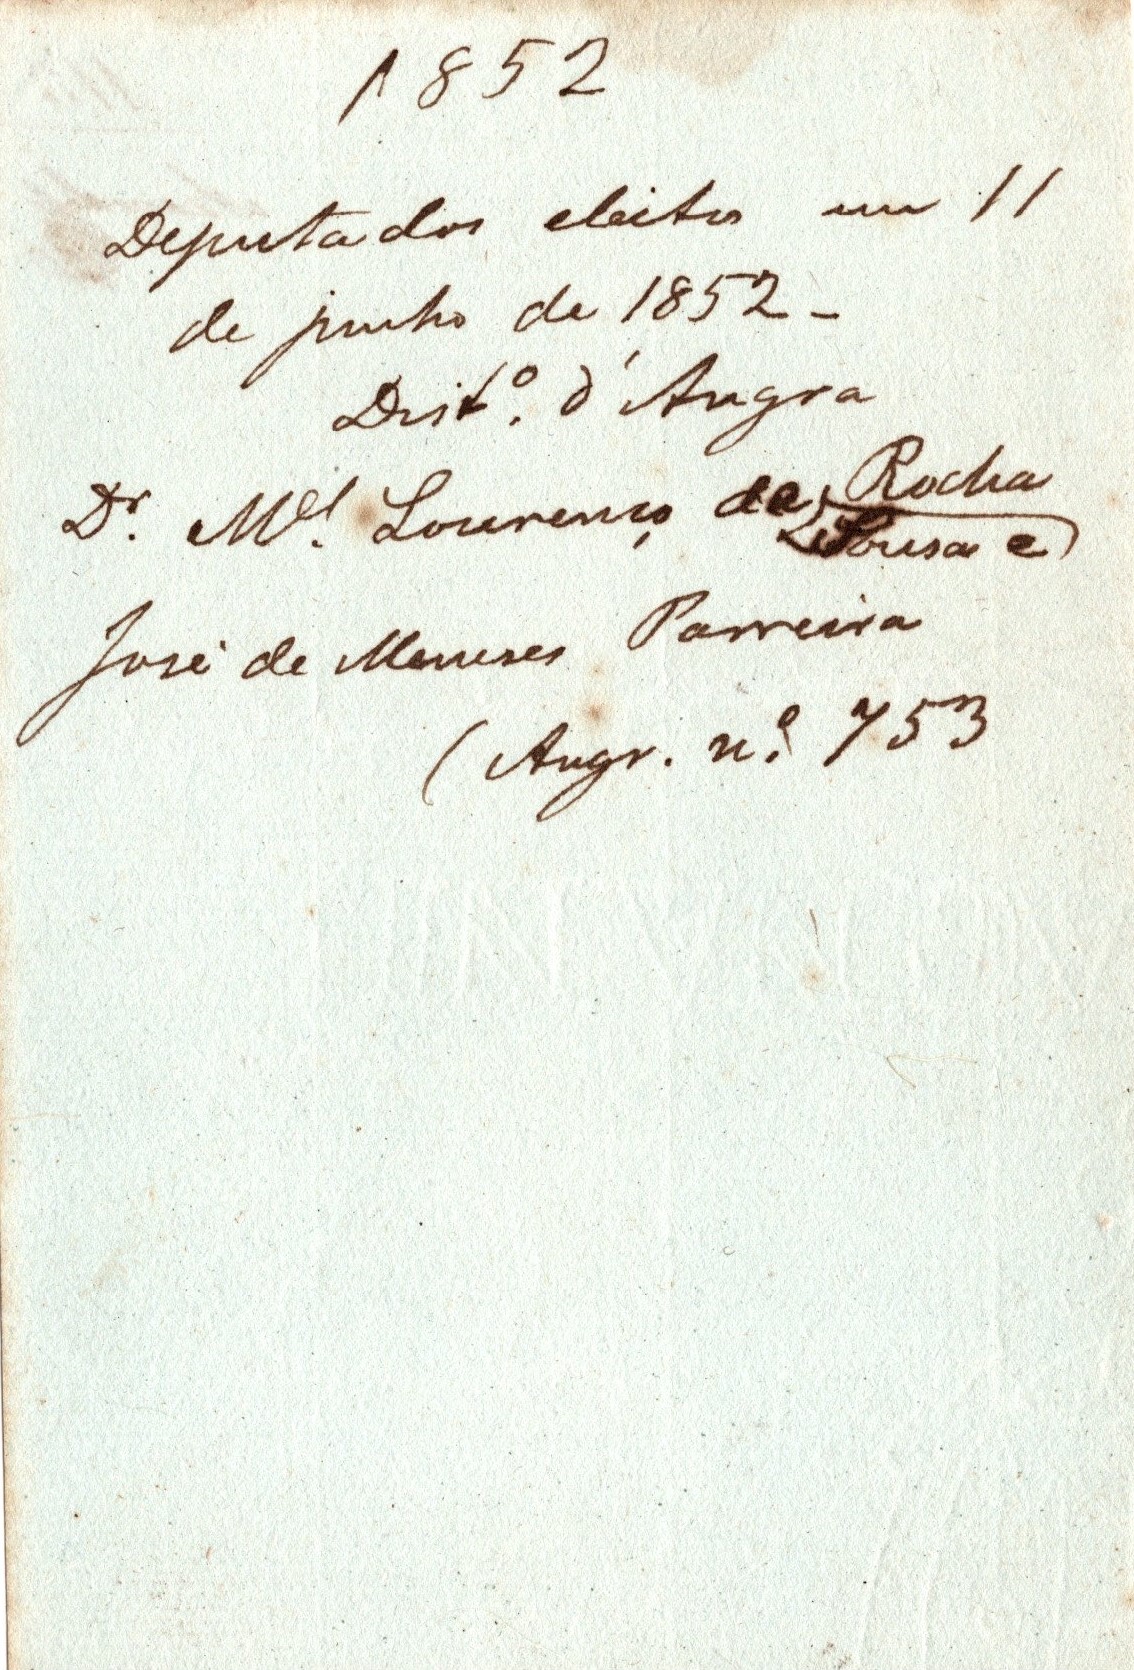 1852
Deputados eleitos em 11
de junho de 1852 -
Dist.º d'Angra
Dr. M.el Lourenço da Rocha
Sousa e
José de Meneses Parreira
(Angr. n.º 753